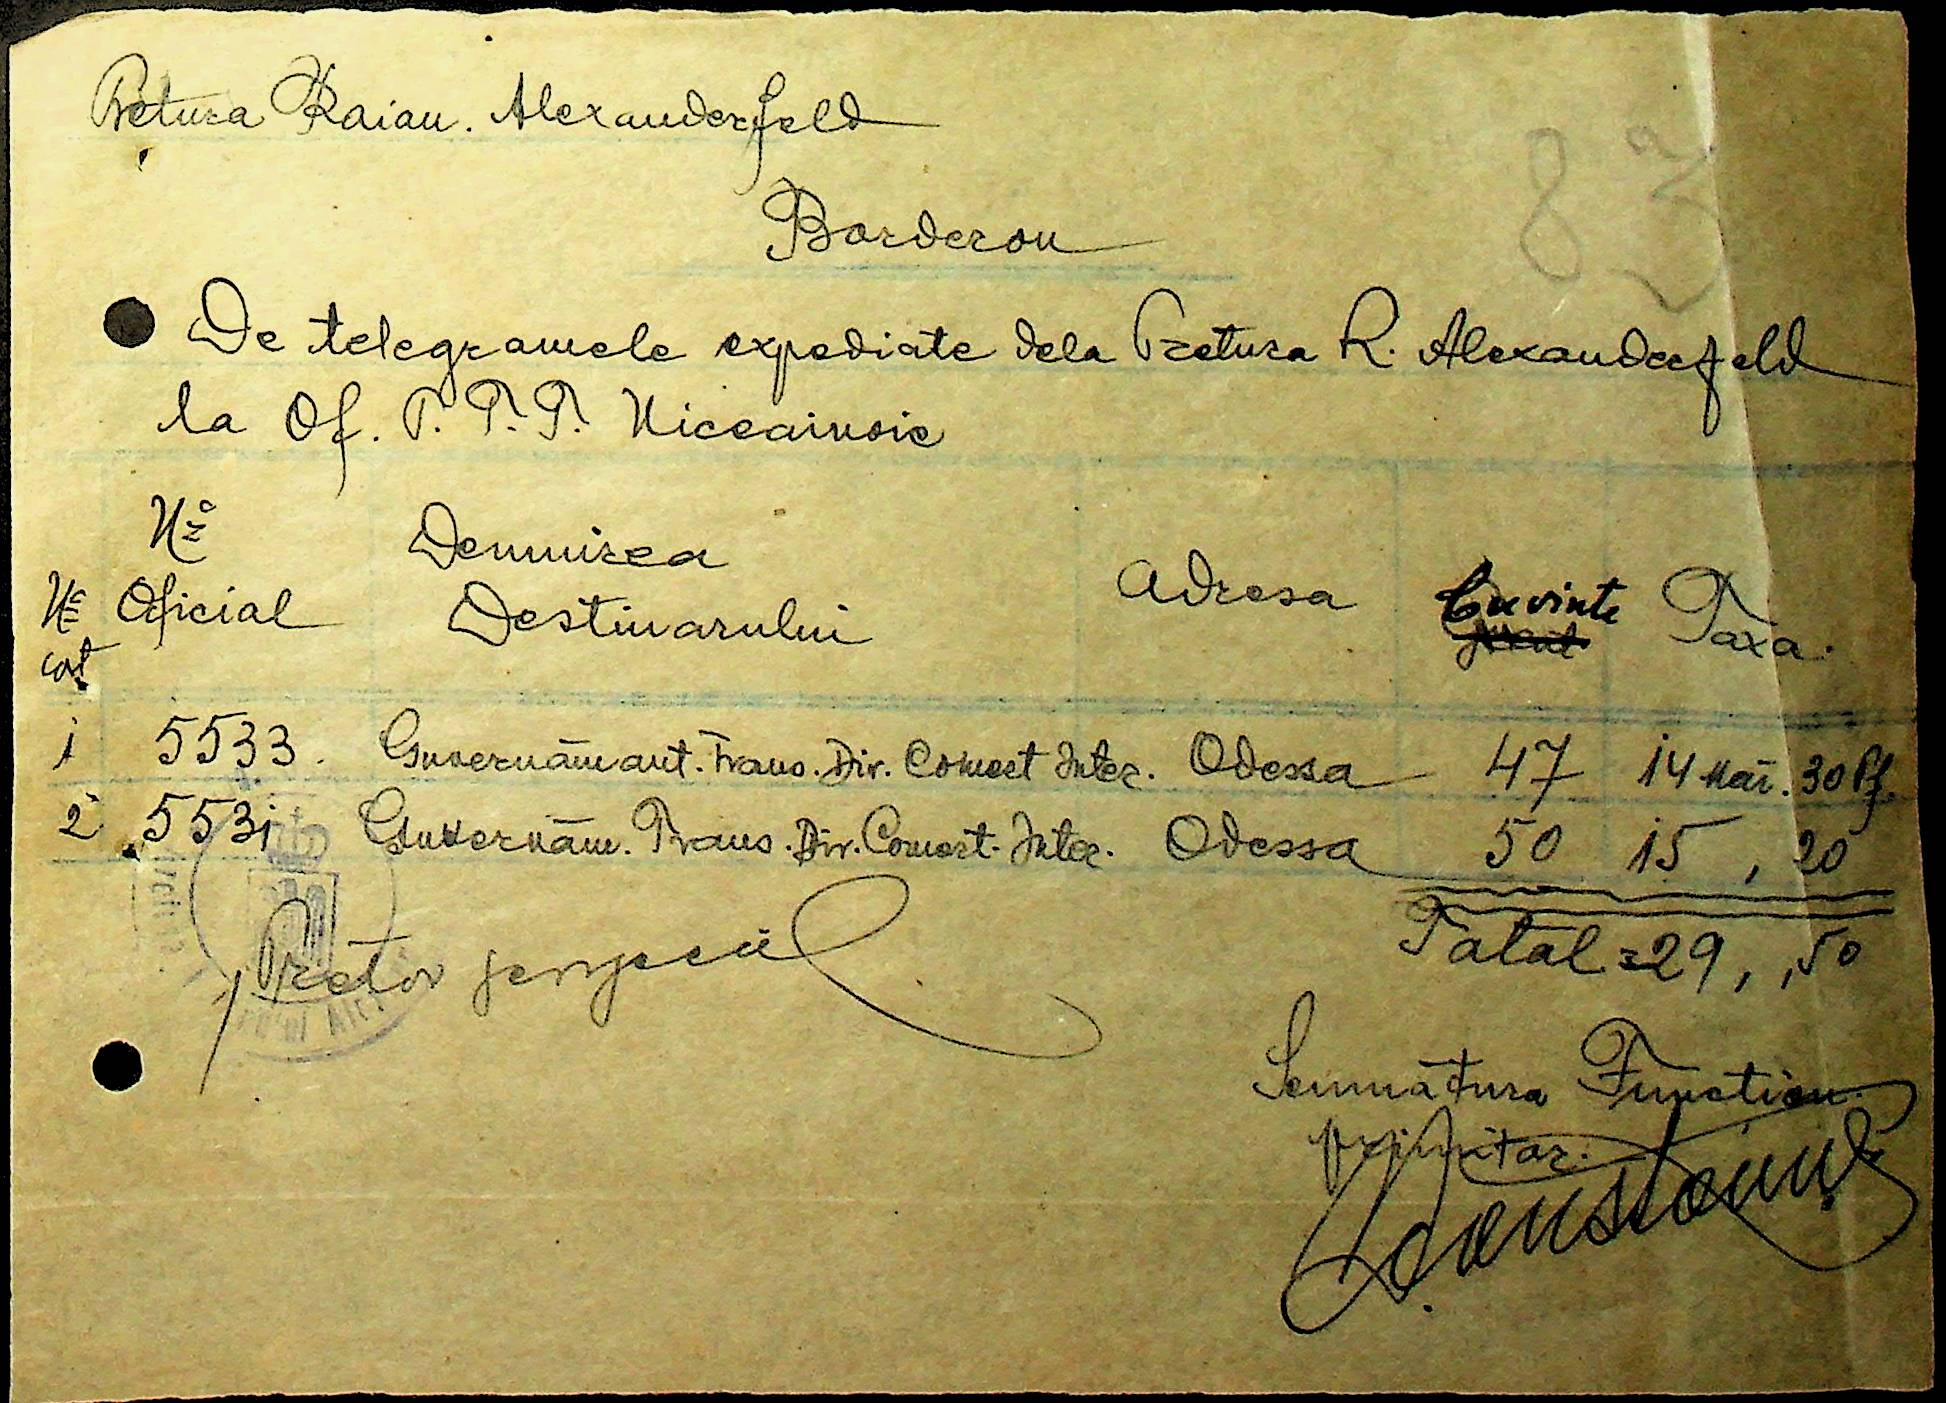 Pretura Raian. Alexanderfeld
83
Borderou
De telegramele expediate dela Pretura R. Alexanderfeld
la Of. P. T. T. Niceainoie
No Oficial Denmirea Destinarului Adresa Cuvinte Taxa.
No cot
1 5533. Guvernămant. Trans. Div. Comert Inter. Odessa 47 14 Mar. 30 Pf.
2 5531 Guvernăm. Trans. Div. Comert. Inter. Odessa 50 15 , 20
Total = 29, , 50
Pretor
Semnătura Function.
primitor.